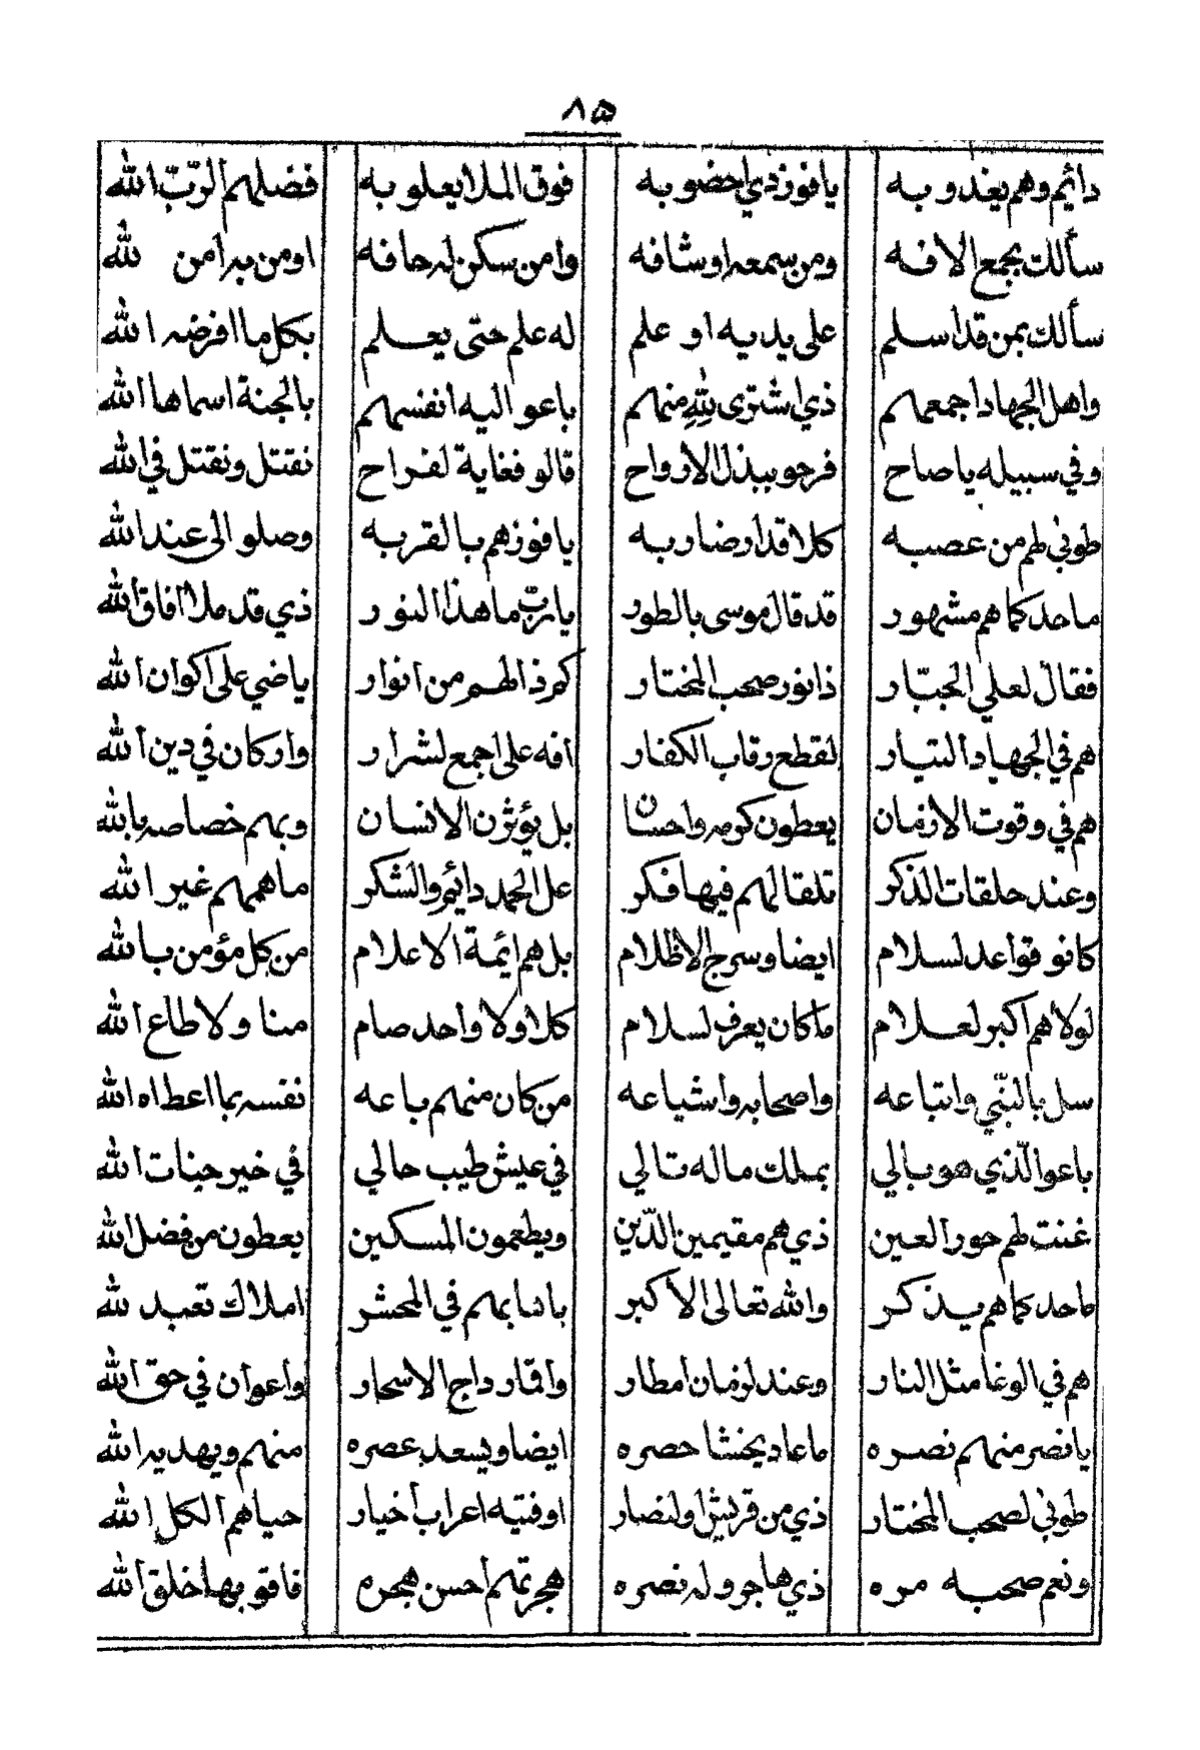 ٨٥
دائم وهم يغدو به يا فوز ذي احضو به فوق الملا يعلو به فضلهم الربّ الله
سألك بجمع الافه ومن سمعه او شافه وامن سكن له حافه اومن به امن لله
سألك بمن قد اسلم على يديه او علم له علم حتى يعلم بكل ما افرضه الله
واهل الجهاد اجمعهم ذي اشترى لله منهم باعو اليه انفسهم بالجنة اسماها الله
وفي سبيله يا صاح فرحو ببذل الأرواح قالو فغاية لفراح نقتل ونقتل في الله
طوبى لهم من عصبه كلا قد ارضا ربه يا فوزهم بالقربه وصلو الى عند الله
ما حد كما هم مشهور قد قال موسى بالطور يا ربّ ما هذا النور ذي قد ملا افاق الله
فقال لعلي الجبّار ذا نور صحب المختار كم ذا لهم من انوار ياضي على اكوان الله
هم في الجهاد التيار لقطع رقاب الكفار افه على اجمع لشرار واركان في دين الله
هم في وقوت الازمان يعطون كرمه واحسان بل يؤثرن الانسان وبهم خصاصه بالله
وعند حلقات الذكر تلقا لهم فيها فكر عل الحمد دائم والشكر ما همهم غير الله
كانو قواعد لسلام ايضا وسرج الاظلام بل هم ائمة الاعلام من كل مؤمن بالله
لولا هم اكبر لعلام ما كان يعرف لسلام كلا ولا واحد صام منا ولا طاع الله
سل بالنبّي واتباعه واصحابه واشياعه من كان منهم باعه نفسه بما اعطاه الله
باعوا الّذي هو بالي بملك ماله تالي في عيش طيب حالي في خير جنات الله
غنت لهم حور العين ذي هم مقيمين الدّين ويطعمون المسكين يعطون من فضل الله
ما حد كما هم يذكر والله تعالى الأكبر باها بهم في المحشر املاك تعبد لله
هم في الوغا مثل النار وعند لزمان امطار واقمار داج الاسحار واعوان في حق الله
يا نصر منهم نصره ما عاد يخشا حصره ايضا ويسعد عصره منهم ويهديه الله
طوبى لصحب المختار ذي من قريش او لنصار او فتيه اعراب أخيار حياهم الكل الله
ونعم صحبه مره ذي هاجرو له نصره هجرتهم احسن هجره فاقو بها خلق الله